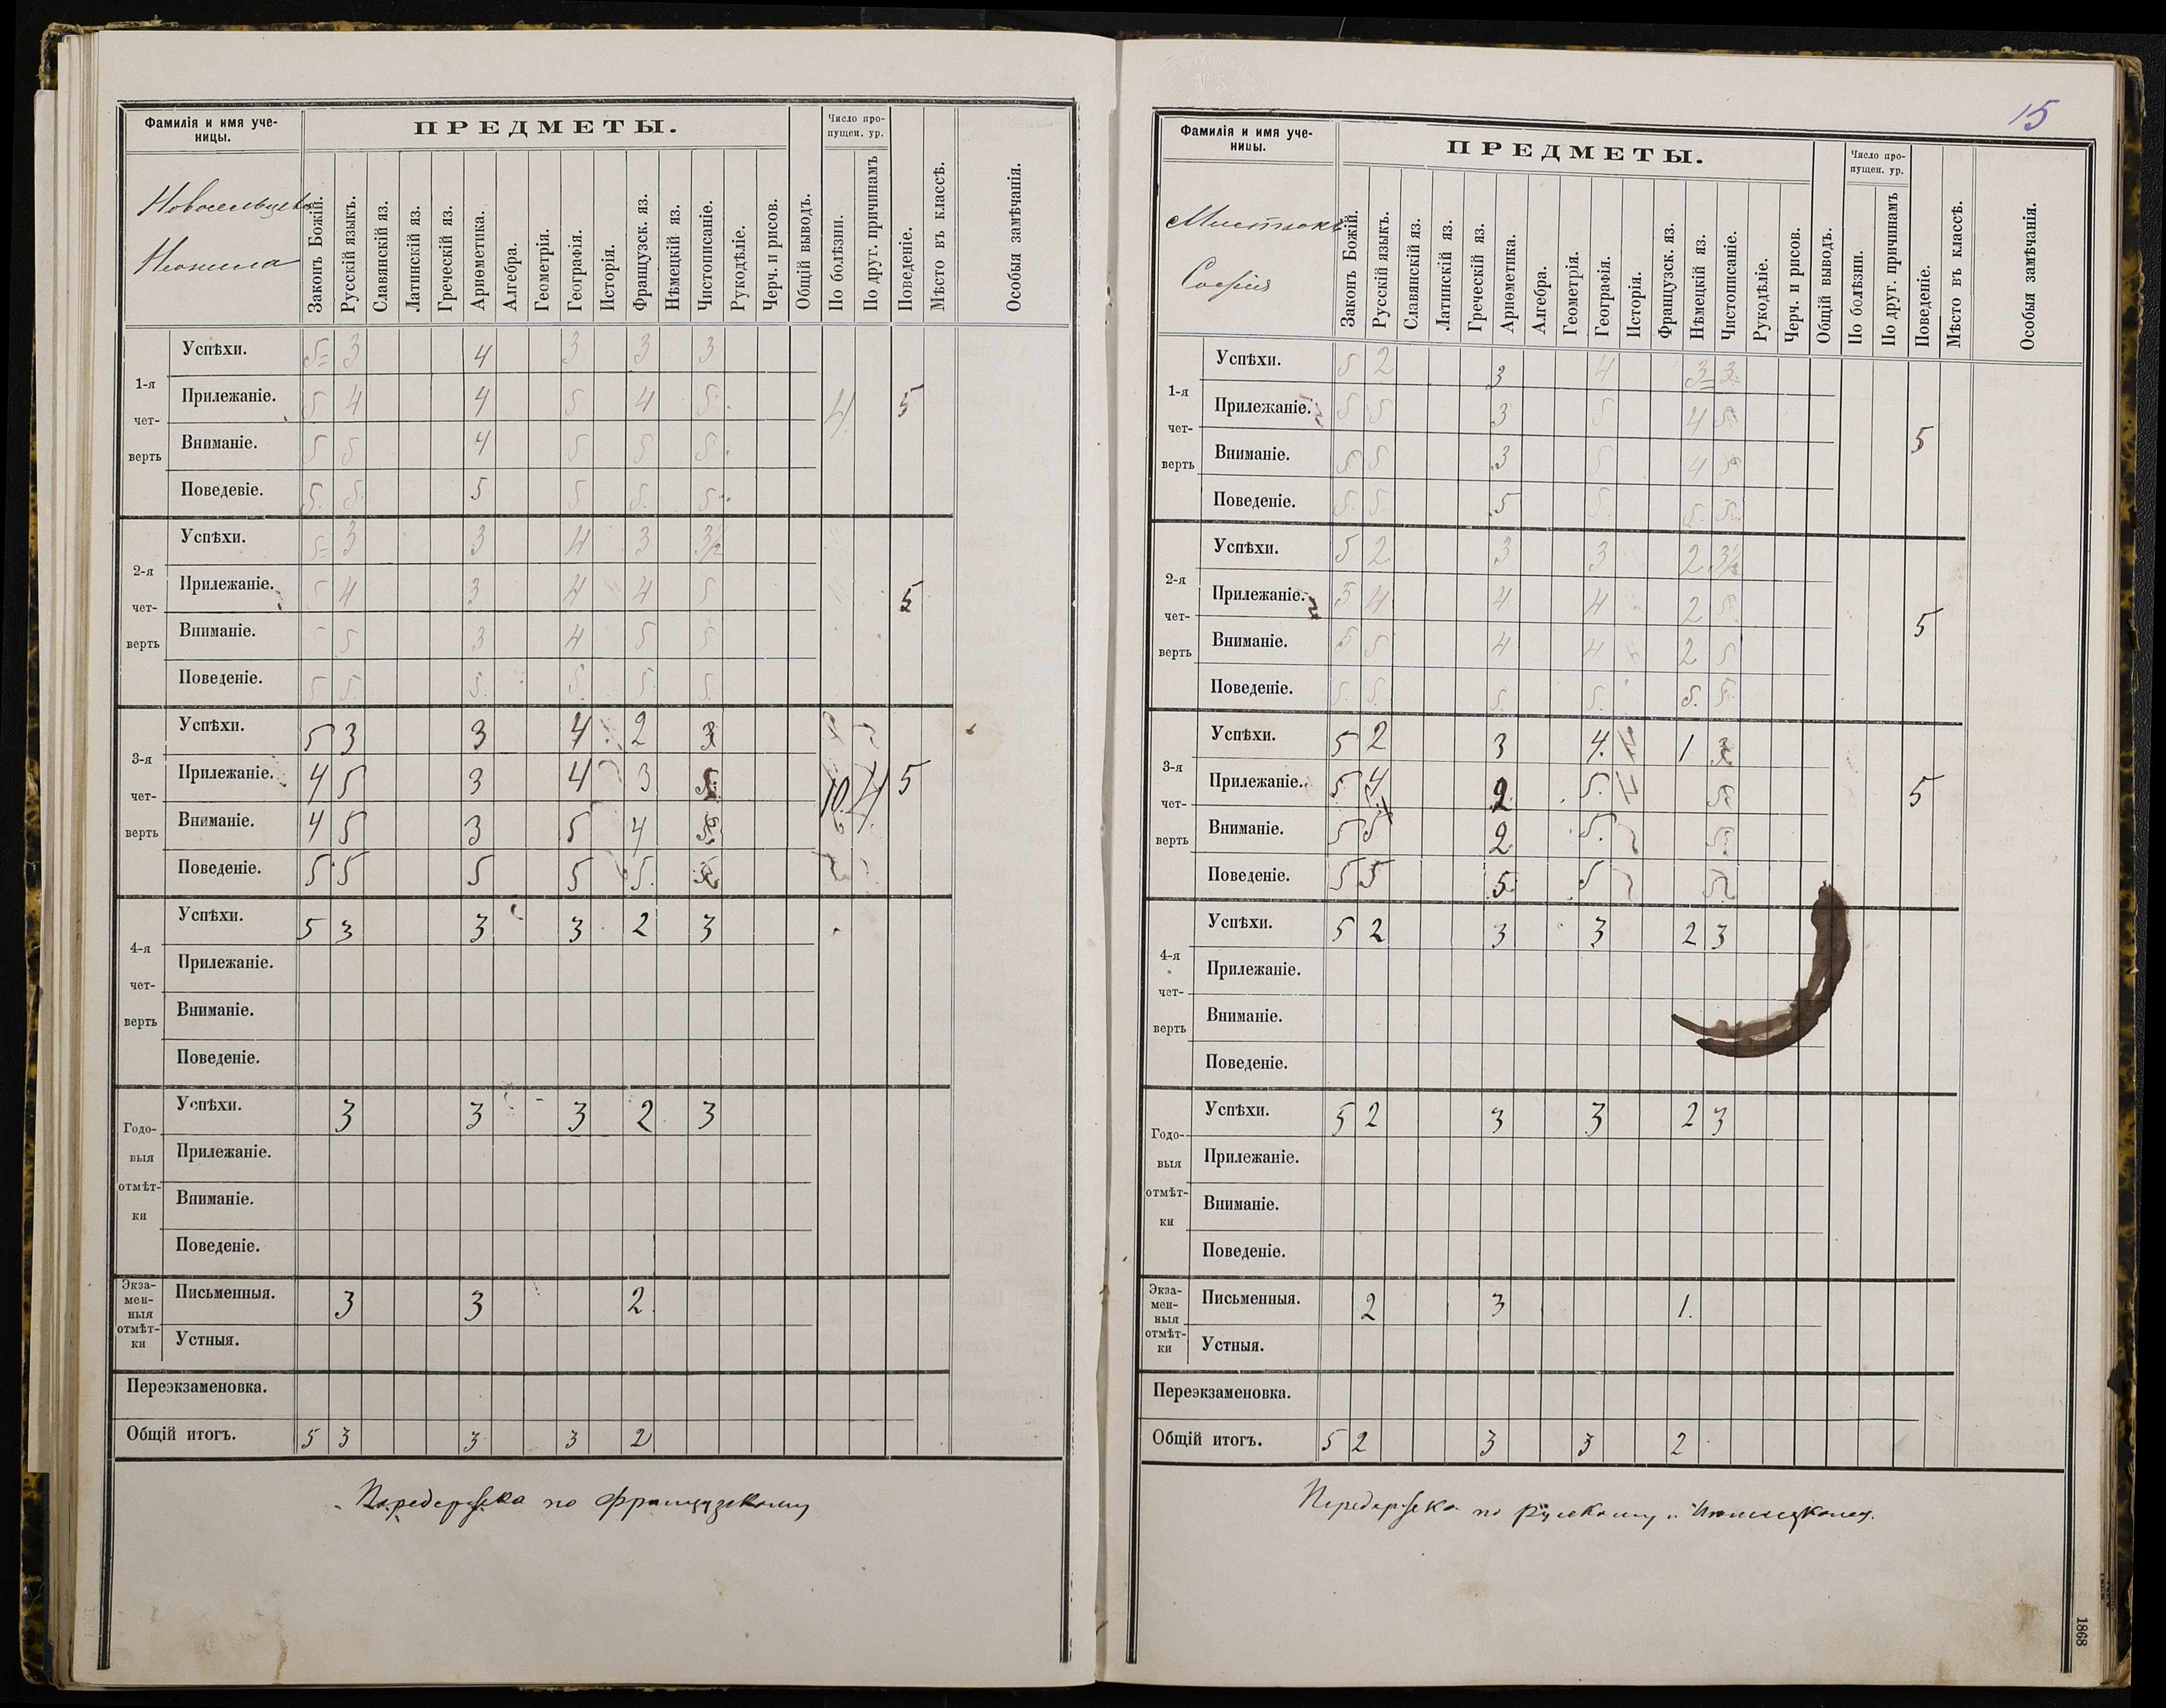 Фамилія и имя уче-
ницы.
ПРЕДМЕТЫ.
Число про-
пущен. ур.
Неонила
Законъ Божій.
Русскій языкъ.
Славянскій яз.
Латинскій яз.
Греческій яз.
Ариѳметика.
Алгебра.
Геометрія.
Географія.
Исторія.
Французск. яз.
Нѣмецкій яз.
Чистописаніе.
Рукодѣліе.
Черч. и рисов.
Общій выводъ.
По болѣзни.
По друг. причинамъ
Поведеніе.
Мѣсто въ классѣ.
Особыя замѣчанія.
1-я чет- верть
Успѣхи. 5= 3 4 3 3 3
Прилежаніе. 5 4 4 5 4 5. 4 5
Вниманіе. 5 5 4 5 5 5.
Поведевіе. 5. 5. 5 5 5. 5.
2-я чет- верть
Успѣхи. 5= 3 3 4 3 3½
Прилежаніе. 5 4 3 4 4 5 5
Вниманіе. 5 5 3 4 5 5
Поведеніе. 5 5. 5. 5. 5. 5.
3-я чет- верть
Успѣхи. 5 3 3 4 2 3
Прилежаніе. 4 5 3 4 3 5. 10. 4 5
Вниманіе. 4 5 3 5 4 5
Поведеніе. 5 5 5 5 5. 5
4-я чет- верть
Успѣхи. 5 3 3 3 2 3
Прилежаніе.
Вниманіе.
Поведеніе.
Годо- выя отмѣт- ки
Успѣхи. 3 3 3 2 3
Прилежаніе.
Вниманіе.
Поведеніе.
Экза- мен- ныя отмѣт- ки
Письменныя. 3 3 2.
Устныя.
Переэкзаменовка.
Общій итогъ. 5 3 3 3 2
Передержка по французскому
15
Фамилія и имя уче-
ницы.
ПРЕДМЕТЫ.
Число про-
пущен. ур.
Софія
Законъ Божій.
Русскій языкъ.
Славянскій яз.
Латинскій яз.
Греческій яз.
Ариѳметика.
Алгебра.
Геометрія.
Географія.
Исторія.
Французск. яз.
Нѣмецкій яз.
Чистописаніе.
Рукодѣліе.
Черч. и рисов.
Общій выводъ.
По болѣзни.
По друг. причинамъ
Поведеніе.
Мѣсто въ классѣ.
Особыя замѣчанія.
1-я чет- верть
Успѣхи. 5 2 3 4 3= 3
Прилежаніе. 5 5 3 5 4 5
Вниманіе. 5 5 3 5 4 5 5
Поведеніе. 5. 5. 5 5. 5. 5.
2-я чет- верть
Успѣхи. 5 2 3 3 2 3½
Прилежаніе. 5 4 4 4 2 5
Вниманіе. 5 5 4 4 2 5 5
Поведеніе. 5. 5. 5. 5. 5. 5.
3-я чет- верть
Успѣхи. 5 2 3 4. 1 3
Прилежаніе. 5 4 2 5. 5 5
Вниманіе. 5 5 2 5. 5.
Поведеніе. 5 5 5. 5 5
4-я чет- верть
Успѣхи. 5 2 3 3 2 3
Прилежаніе.
Вниманіе.
Поведеніе.
Годо- выя отмѣт- ки
Успѣхи. 5 2 3 3 2 3
Прилежаніе.
Вниманіе.
Поведеніе.
Экза- мен- ныя отмѣт- ки
Письменныя. 2 3 1.
Устныя.
Переэкзаменовка.
Общій итогъ. 5 2 3 3 2
Передержка по русскому и нѣмецкому.
1868